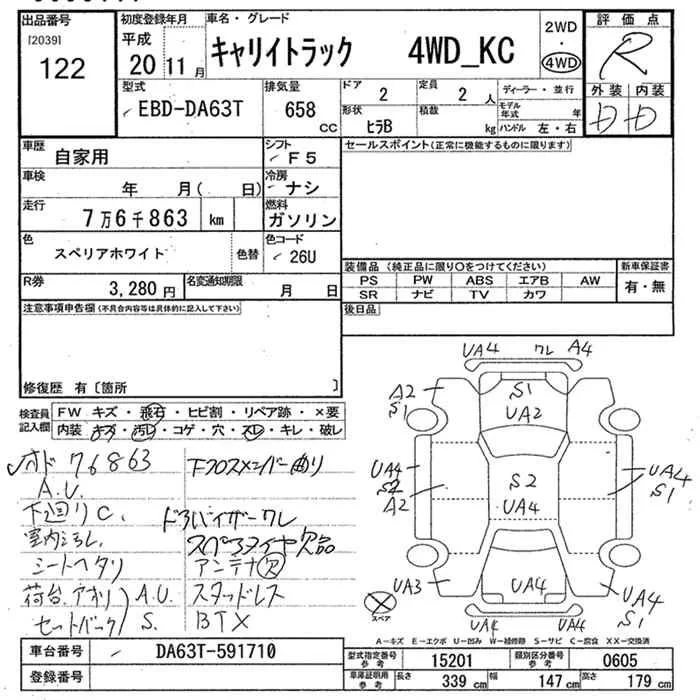 出品番号
[2039]
122
初度登録年月
平成
20 11 月
車名・グレード
キャリイトラック 4WD_KC
2WD
・
4WD
評価点
R
外装 内装
D D
型式
EBD-DA63T
排気量
658 CC
ドア 2
定員 2 人
形状 ヒラB
積載 kg
ディーラー・並行
モデル年式 年
ハンドル 左・右
車歴
自家用
シフト
F5
車検
年 月( 日)
冷房
ナシ
走行
7万6千863 km
燃料
ガソリン
色
スペリアホワイト
色替
色コード
26U
R券
3,280 円
名変通知期限
月 日
セールスポイント(正常に機能するものに限ります)
装備品 (純正品に限り〇をつけてください)
PS PW ABS エアB AW
SR ナビ TV カワ
新車保証書
有・無
後日品
注意事項申告欄(不具合内容等は具体的に記入して下さい)
修復歴 有〔箇所 〕
検査員記入欄
FW キズ・飛石・ヒビ割・リペア跡・×要
内装 キズ・汚レ・コゲ・穴・スレ・キレ・破レ
オド 76863
A.U.
下廻りC.
室内汚レ.
シートヘタリ
荷台.アオリ A.U.
セットバック S.
下フロスメンバー曲り
ドアバイザーワレ
スペアタイヤ欠品
アンテナ欠
スタッドレス
BTX
UA4 ワレ A4
A2
S1
S1
UA2
UA4
S2
A2
S2
UA4
UA4
S1
UA3
UA4
UA4
S1
UA4 UA4
スペア
A―キズ E―エクボ U―凹み W―補修跡 S―サビ C―腐食 XX―交換済
車台番号
DA63T-591710
登録番号
型式指定番号
参考
15201
類別区分番号
参考
0605
車庫証明用
参考
長さ 339 cm
幅 147 cm
高さ 179 cm